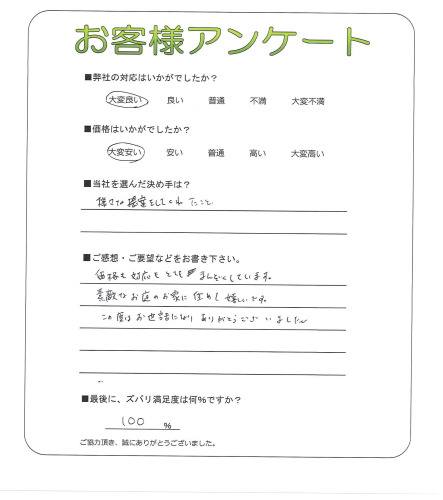 お客様アンケート
■弊社の対応はいかがでしたか？
大変良い 良い 普通 不満 大変不満
■価格はいかがでしたか？
大変安い 安い 普通 高い 大変高い
■当社を選んだ決め手は？
提案をしてくれたこと
■ご感想・ご要望などをお書き下さい。
価格も対応もとてもまんぞくしています。
素敵なお庭のお家に住めて嬉しいです。
この度はお世話になりありがとうございました
■最後に、ズバリ満足度は何%ですか？
100 %
ご協力頂き、誠にありがとうございました。